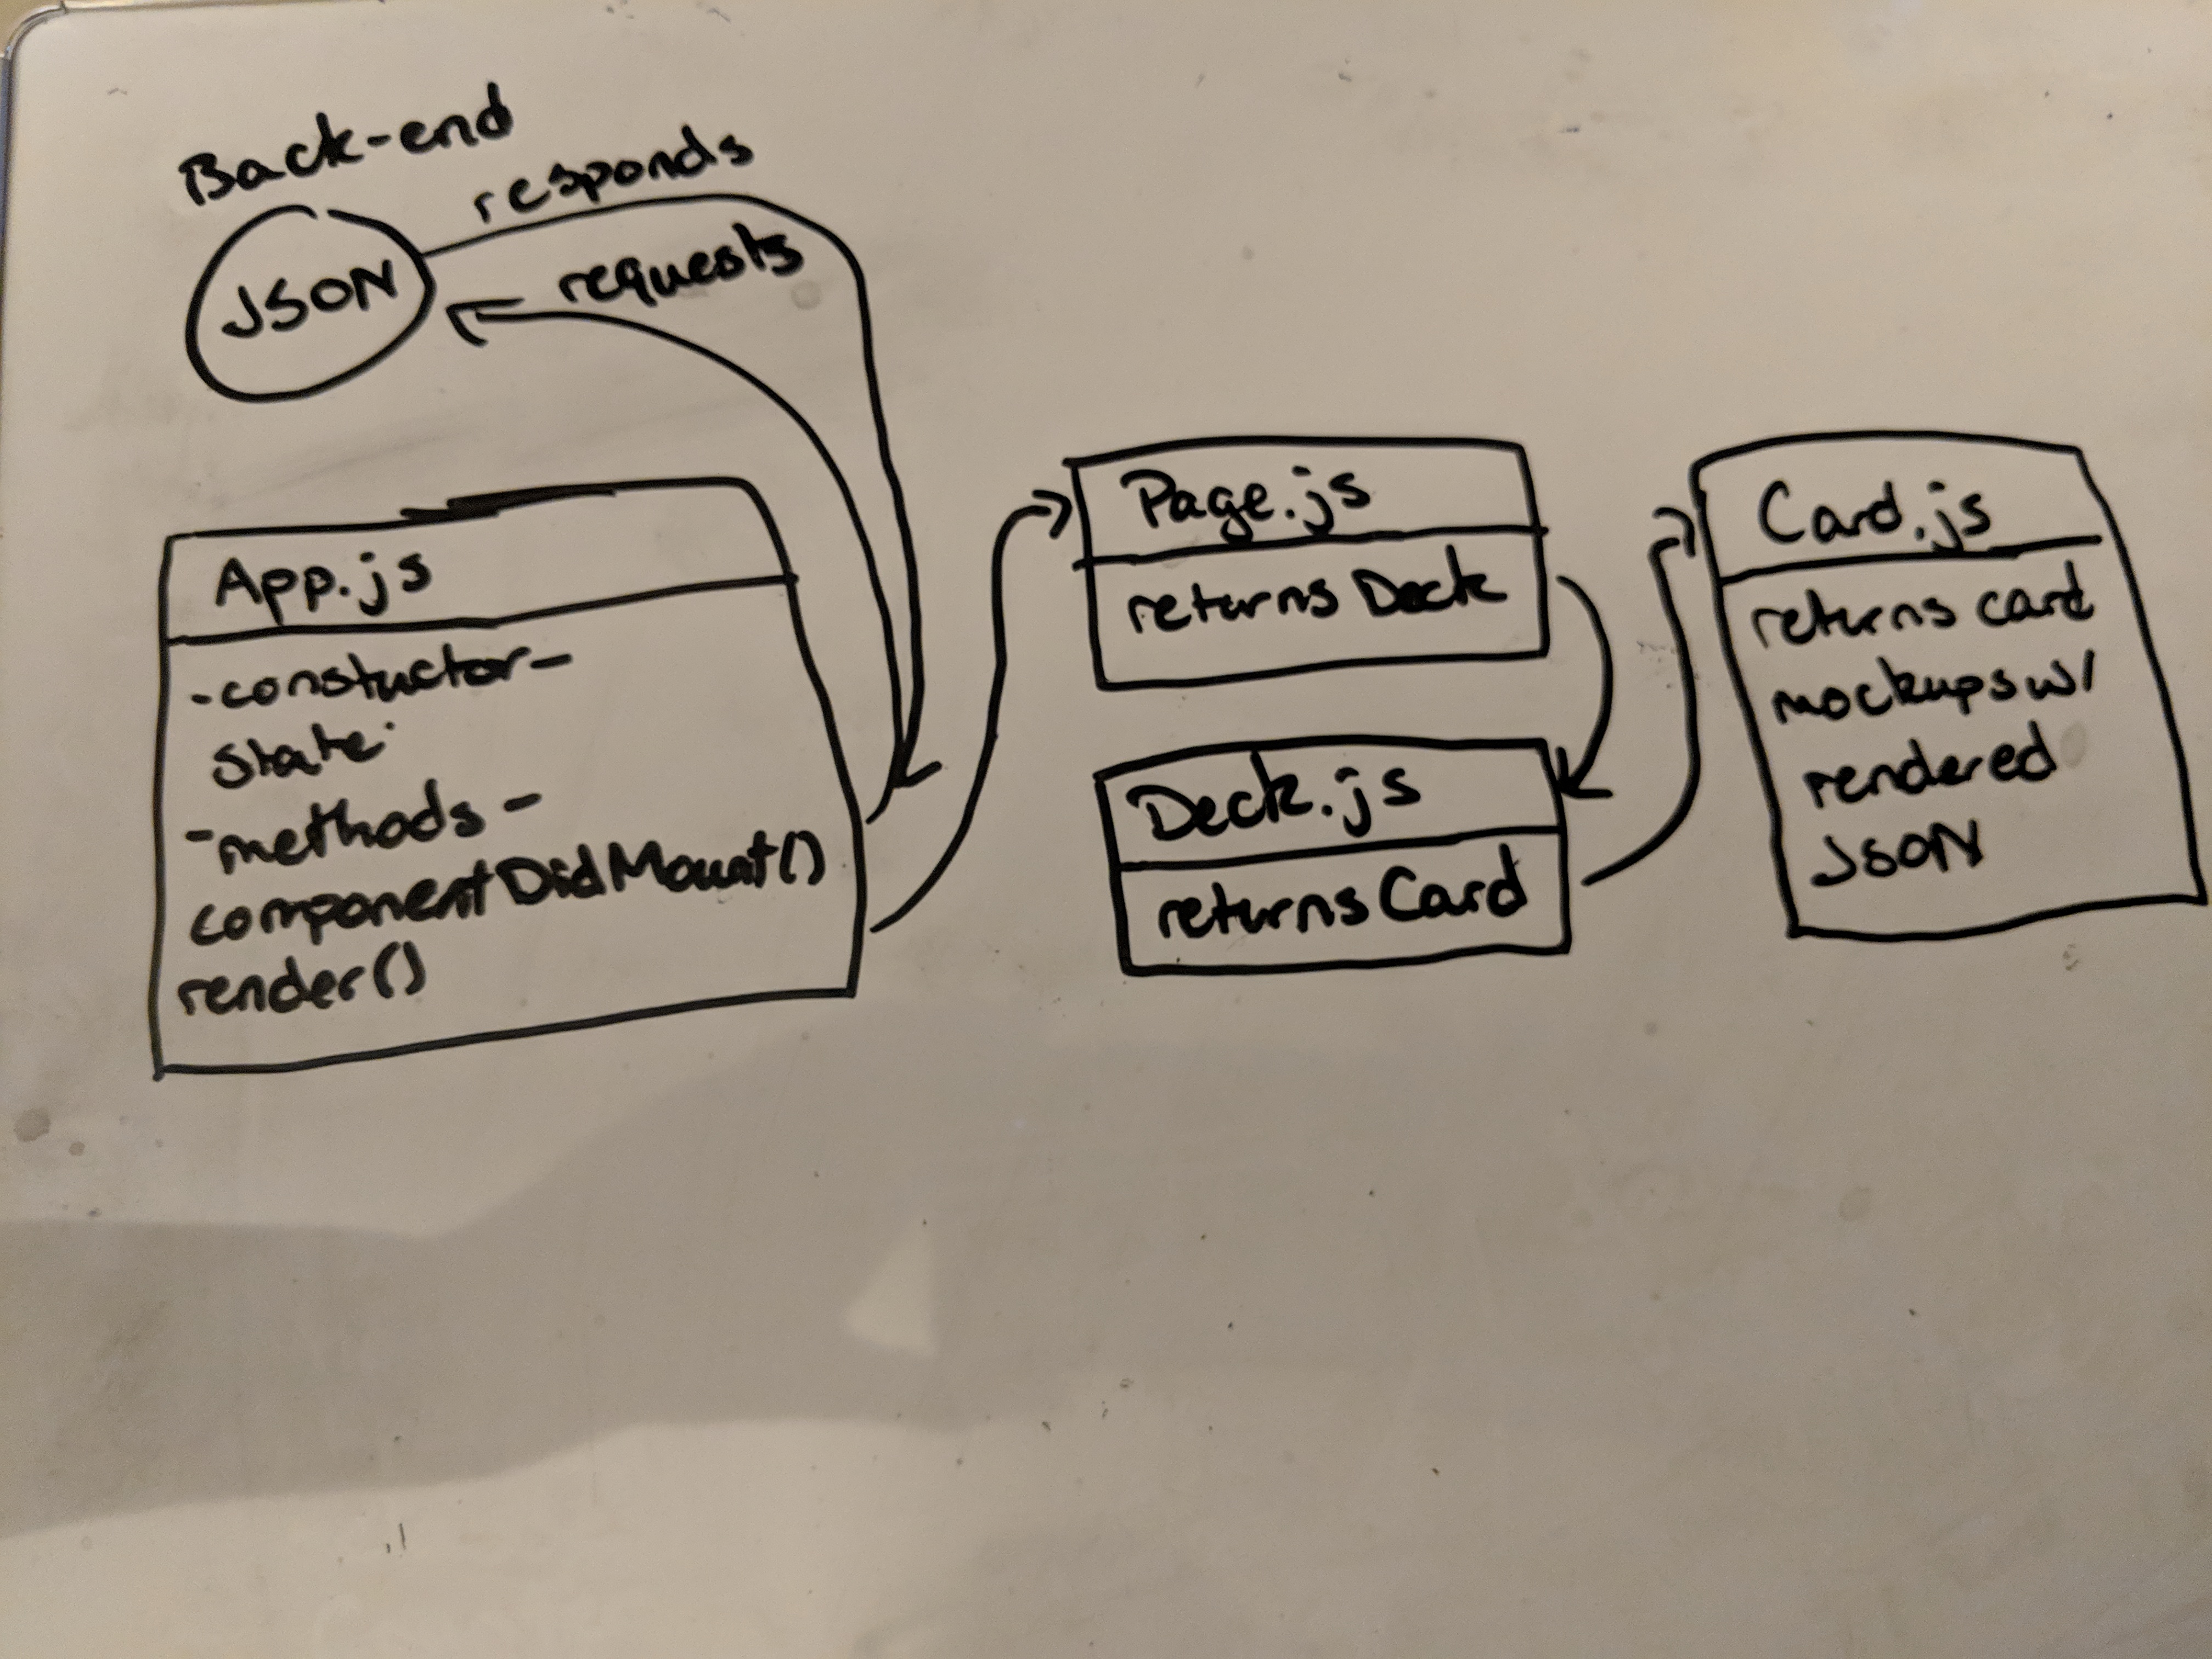 Back-end
responds
requests
JSON
App.js
-constuctor-
state:
-methods-
componentDidMount()
render()
Page.js
returns Deck
Deck.js
returns Card
Card.js
returns card
mockups w/
rendered
JSON